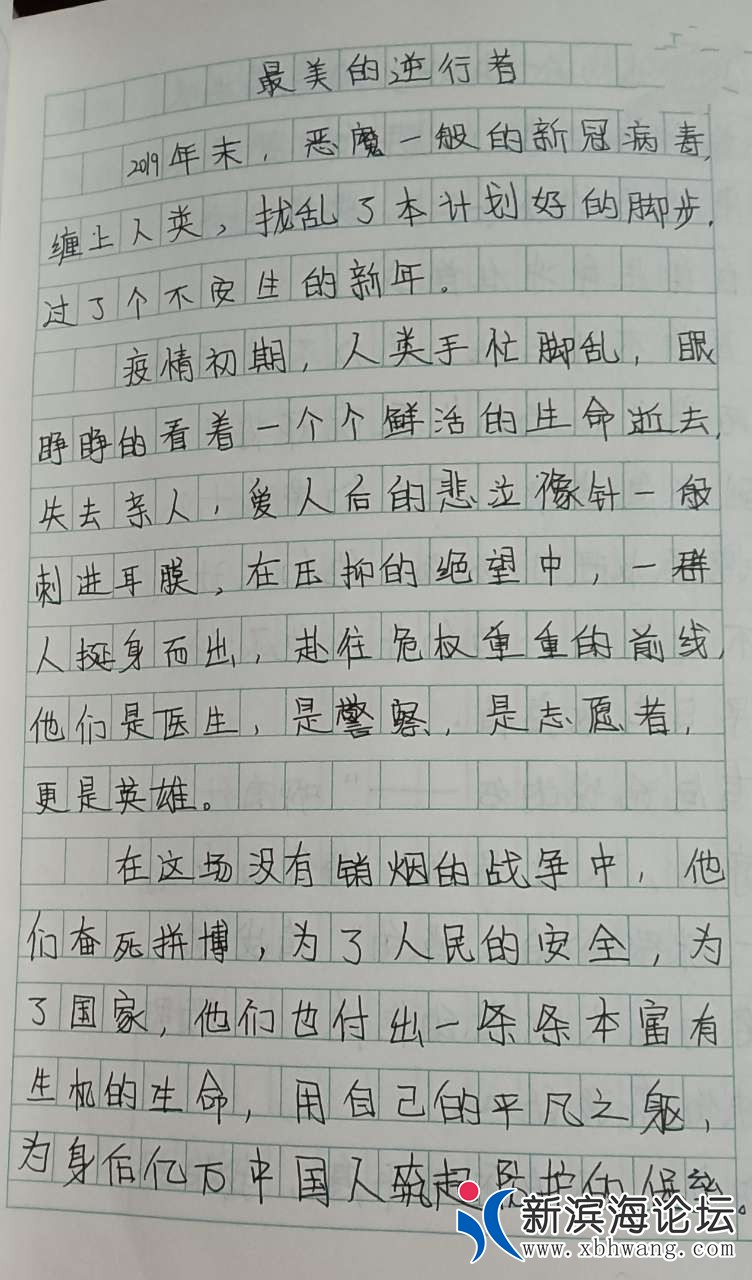 最美的逆行者
2019年末，恶魔一般的新冠病毒，
缠上人类，扰乱了本计划好的脚步，
过了个不安生的新年。
疫情初期，人类手忙脚乱，眼
睁睁的看着一个个鲜活的生命逝去，
失去亲人，爱人后的悲泣像针一般
刺进耳膜，在压抑的绝望中，一群
人挺身而出，赴往危权重重的前线，
他们是医生，是警察，是志愿者，
更是英雄。
在这场没有销烟的战争中，他
们奋死拼博，为了人民的安全，为
了国家，他们也付出一条条本富有
生机的生命，用自己的平凡之躯，
为身后亿万中国人筑起防护的保线。
新滨海论坛
www.xbhwang.com